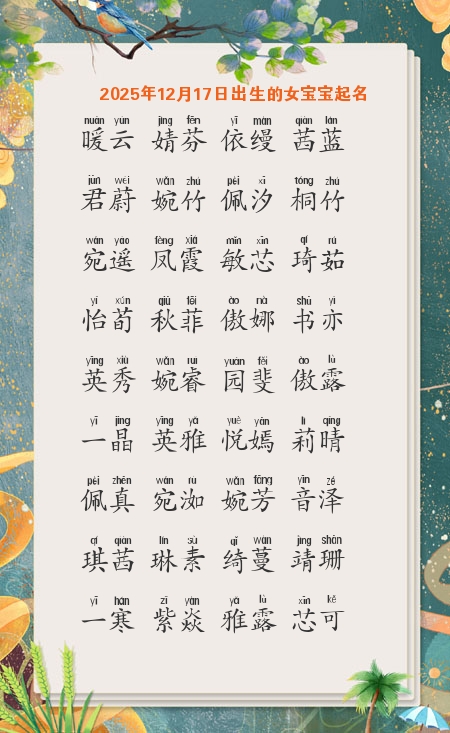 2025年12月17日出生的女宝宝起名
nuǎn yún jīng fēn yī màn qiàn lán
暖云 婧芬 依缦 茜蓝
jūn wèi wǎn zhú pèi xī tóng zhú
君蔚 婉竹 佩汐 桐竹
wǎn yáo fèng xiá mǐn xīn qí rú
宛遥 凤霞 敏芯 琦茹
yí xún qiū fēi ào nà shū yì
怡荀 秋菲 傲娜 书亦
yīng xiù wǎn ruì yuán fěi ào lù
英秀 婉睿 园斐 傲露
yī jīng yīng yǎ yuè yān lì qíng
一晶 英雅 悦嫣 莉晴
pèi zhēn wǎn rù wǎn fāng yīn zé
佩真 宛洳 婉芳 音泽
qí qiàn lín sù qǐ wàn jìng shān
琪茜 琳素 绮蔓 靖珊
yī hán zǐ yàn yǎ lù xīn kě
一寒 紫焱 雅露 芯可